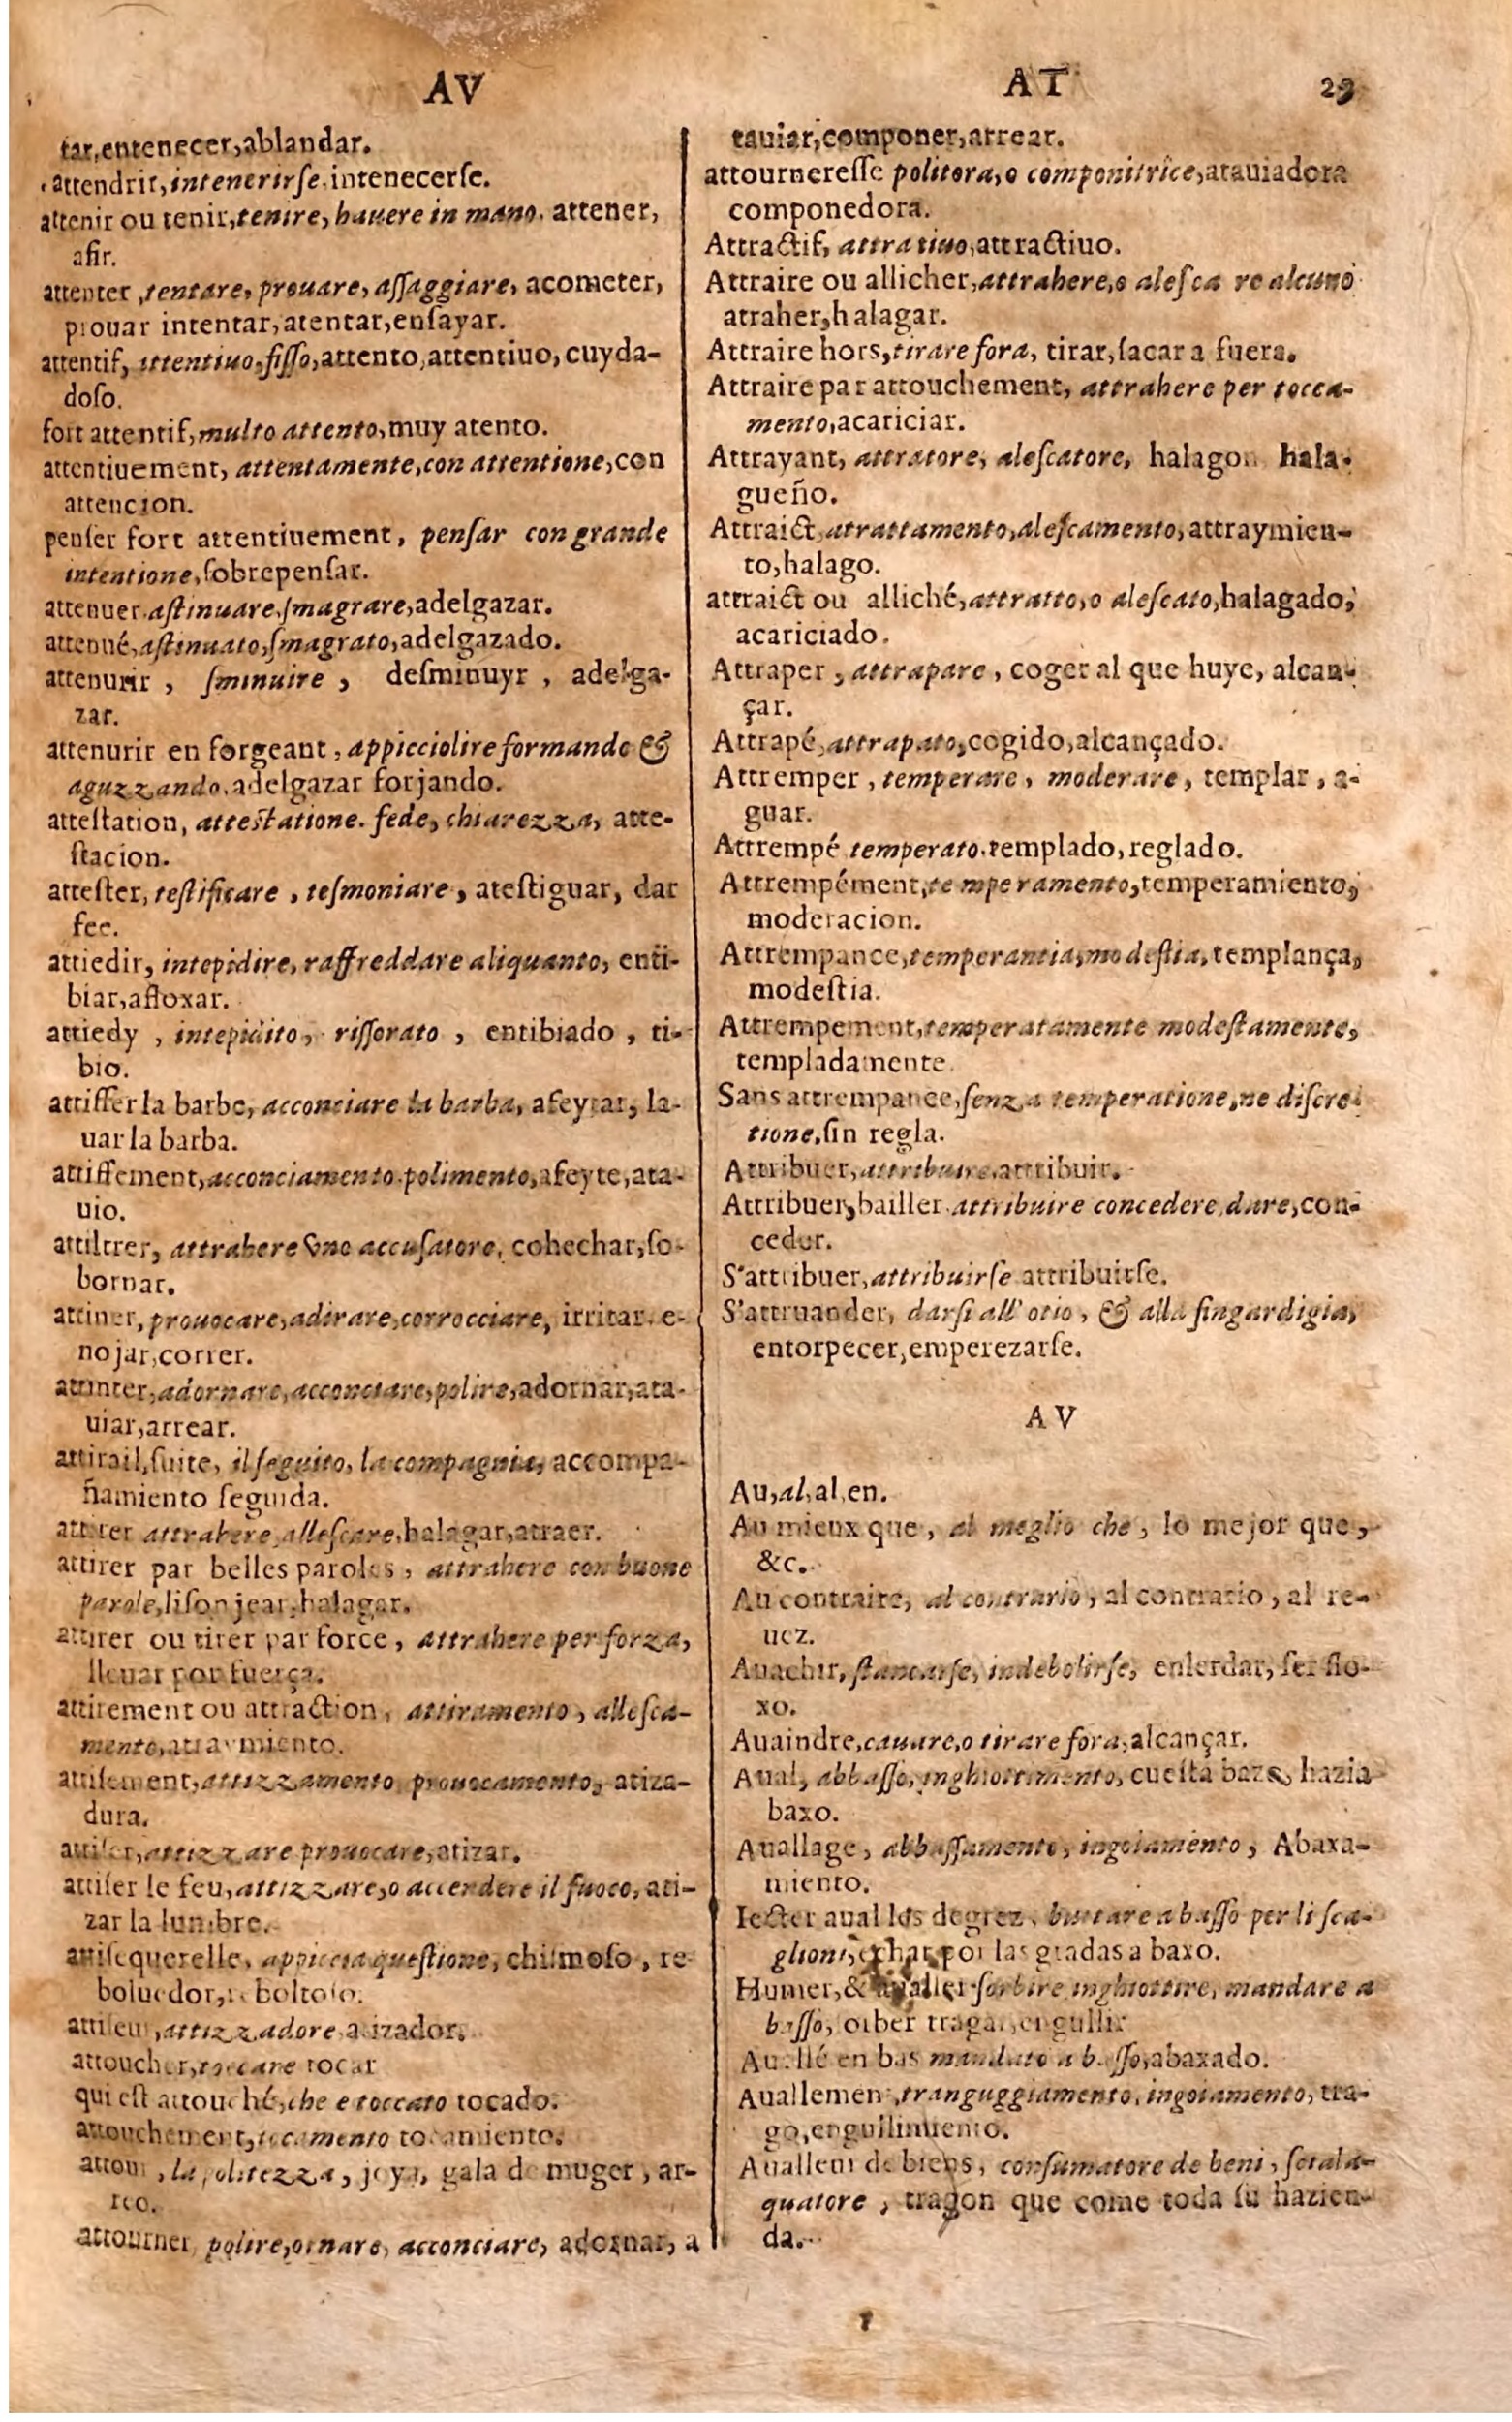 AV
tar, entenecer, ablandar.
attendrir, intenerirse. intenecerſe.
attenir ou tenir, tenire, hauere in mano. attener,
aſir.
attenter, tentare, prouare, aſſaggiare, acometer,
prouar intentar, atentar, enſayar.
attentif, attentiuo, fiſſo, attento, attentiuo, cuyda-
doſo.
fort attentif, multo attento, muy atento.
attentiuement, attentamente, con attentione, con
attencion.
penſer fort attentiuement, penſar con grande
intentione, ſobrepenſar.
attenuer. aſtinuare, ſmagrare, adelgazar.
attenué, aſtinuato, ſmagrato, adelgazado.
attenurir, ſminuire, deſminuyr, adelga-
zar.
attenurir en forgeant, appicciolire formando &
aguzzando. adelgazar forjando.
atteſtation, atteſtatione. fede, chiarezza, atte-
ſtacion.
atteſter, teſtificare, teſmoniare, ateſtiguar, dar
fee.
attiedir, intepidire, raffreddare aliquanto, enti-
biar, afloxar.
attiedy, intepidito, riſſorato, entibiado, ti-
bio.
attiffer la barbe, acconciare la barba, afeytar, la-
uar la barba.
attiffement, acconciamento. polimento, afeyte, ata-
uio.
attiltrer, attrahere vno accuſatore, cohechar, ſo-
bornar.
attiner, prouocare, adirare, corrocciare, irritar. e-
nojar, correr.
attinter, adornare, acconciare, polire, adornar, ata-
uiar, arrear.
attirail, ſuite, il ſeguito, la compagnia, accompa-
ñamiento ſeguida.
attirer attrahere, alleſcare, halagar, atraer.
attirer par belles paroles, attrahere con buone
parole, liſonjear, halagar.
attirer ou tirer par force, attrahere per forza,
lleuar por fuerça.
attirement ou attraction, attiramento, alleſca-
mento, atraymiento.
attiſement, attizzamento prouocamento, atiza-
dura.
attiſer, attizzare prouocare, atizar.
attiſer le feu, attizzare, o accendere il fuoco, ati-
zar la lumbre.
attiſequerelle, appiccia queſtione, chiſmoſo, re
boluedor, reboltoſo.
attiſeur, attizzadore, atizador.
attoucher, toccare tocar
qui eſt attouché, che e toccato tocado.
attouchement, tocamento tocamiento.
attour, la politezza, joya, gala de muger, ar-
reo.
attourner, polire, ornare, acconciare, adornar, a
AT 29
tauiar, componer, arrear.
attournereſſe politora, o componitrice, atauiadora
componedora.
Attractif, attratiuo, attractiuo.
Attraire ou allicher, attrahere, o aleſca re alcuno
atraher, halagar.
Attraire hors, tirare fora, tirar, ſacar a fuera.
Attraire par attouchement, attrahere per tocca-
mento, acariciar.
Attrayant, attratore, aleſcatore, halagon hala-
gueño.
Attraict, atrattamento, aleſcamento, attraymien-
to, halago.
attraict ou alliché, attratto, o aleſcato, halagado,
acariciado.
Attraper, attrapare, coger al que huye, alcan-
çar.
Attrapé, attrapato, cogido, alcançado.
Attremper, temperare, moderare, templar, a-
guar.
Attrempé temperato. templado, reglado.
Attrempément, te mperamento, temperamiento,
moderacion.
Attrempance, temperantia, modeſtia, templança,
modeſtia.
Attrempement, temperatamente modeſtamente,
templadamente.
Sans attrempance, ſenza temperatione, ne diſcre-
tione, ſin regla.
Attribuer, attribuire, attribuir.
Attribuer, bailler. attribuire concedere, dare, con-
ceder.
S'attribuer, attribuirſe attribuirſe.
S'attruander, darſi all' otio, & alla fingardigia,
entorpecer, emperezarſe.
AV
Au, al, al, en.
Au mieux que, al meglio che, lo mejor que,
&c.
Au contraire, al contrario, al contrario, al re-
uez.
Auachir, ſtancarſe, indebolirſe, enlerdar, ſer flo-
xo.
Auaindre, cauare, o tirare fora, alcançar.
Aual, abbaſſo, inghiottimento, cueſta baxa, hazia
baxo.
Auallage, abbaſſamento, ingoiamento, Abaxa-
miento.
Iecter aual los degrez, buttare a baſſo per li ſca-
glioni, echar por las gradas a baxo.
Humer, & aualler ſorbire inghiottire, mandare a
baſſo, ſorber tragar, engullir
Auallé en bas mandato a baſſo, abaxado.
Auallement, tranguggiamento, ingoiamento, tra-
go, engullimiento.
Aualleur de biens, conſumatore de beni, ſcala-
quatore, tragon que come toda ſu hazien-
da.